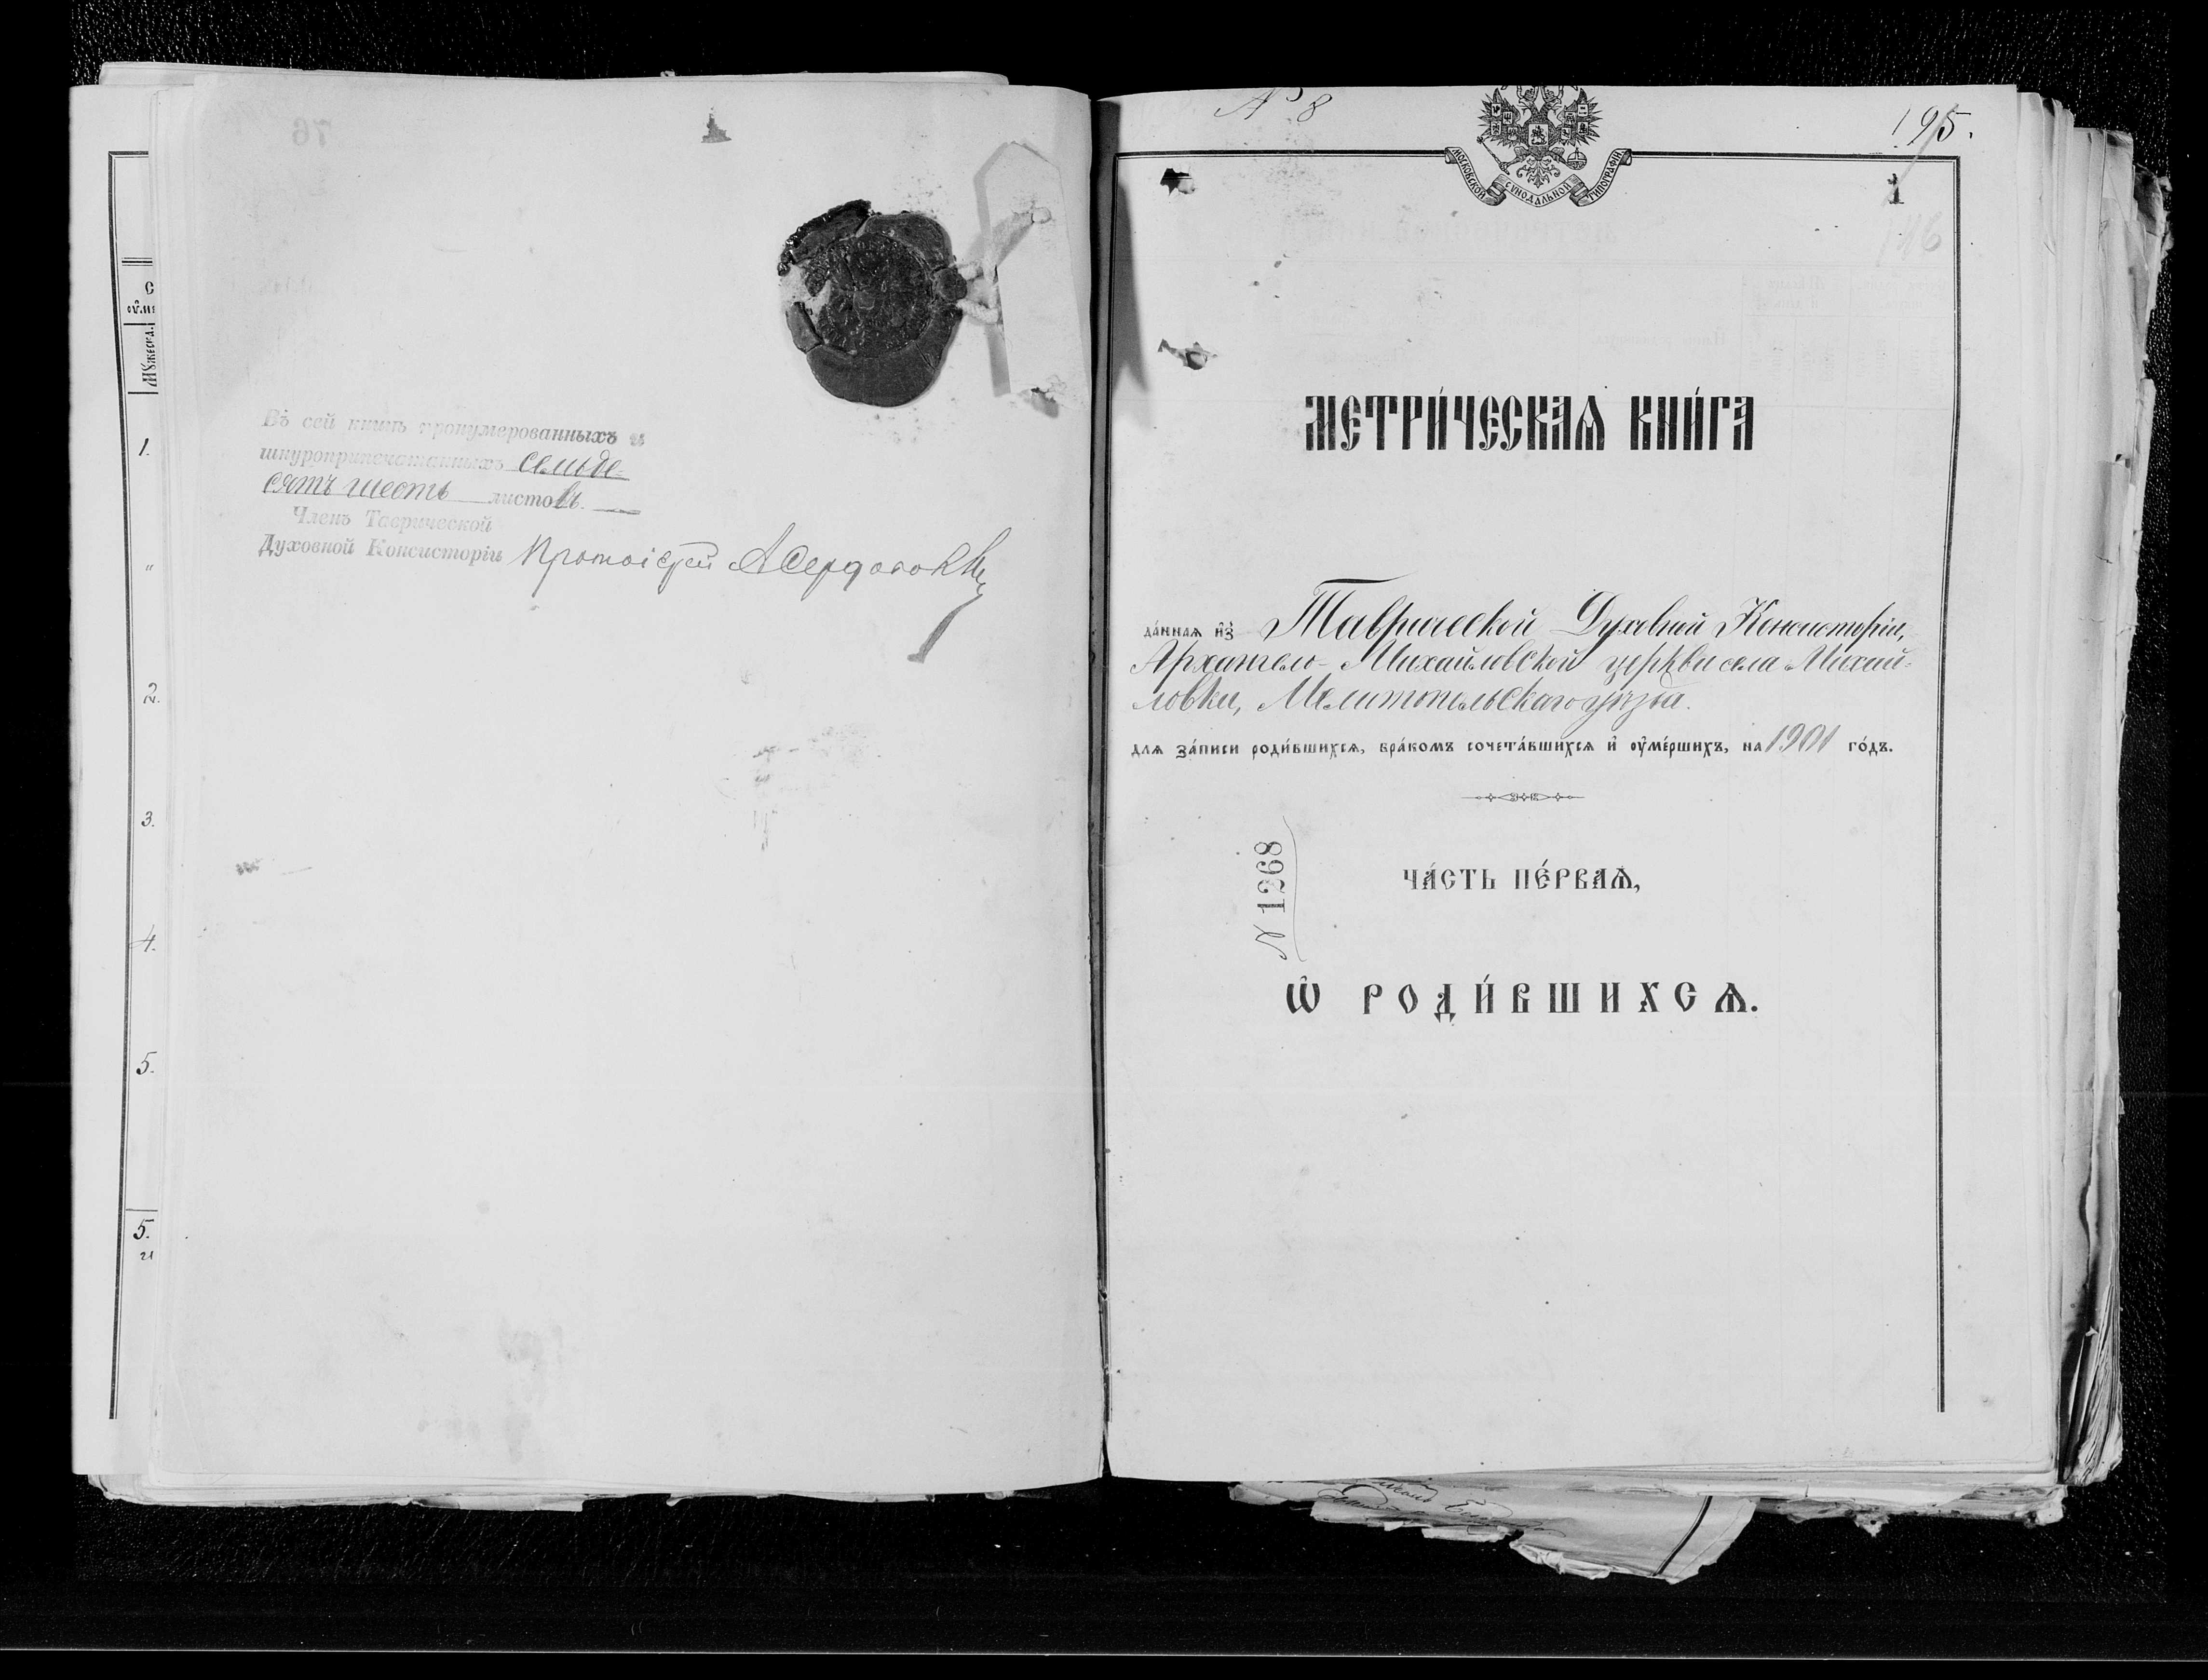 С
1.
"
2.
3.
4.
5.
5.
76
Въ сей книгѣ пронумерованныхъ и
шнуроприпечатанныхъ семьде-
сятъ шесть листовъ.
Членъ Таврической
Духовной Консисторіи Протоіерей
№ 8
195.
МОСКОВСКОЙ СѴНОДАЛЬНОЙ ТИПОГРАФІИ
1
МЕТРИ́ЧЕСКАѦ КНИ́ГА
да́ннаѧ и҆з̾ Таврической Духовной Консисторіи,
Архангело-Михайловской церкви села Михай-
ловки, Мелитопольскаго уѣзда.
для за́писи роди́вшихсѧ, бра́комъ сочета́вшихсѧ и҆ ᲂу҆ме́ршихъ, на 1901 го́дъ.
N 1268
ЧА́СТЬ ПЕ́РВАѦ,
Ѡ҆ РОДИ́ВШИХСѦ.